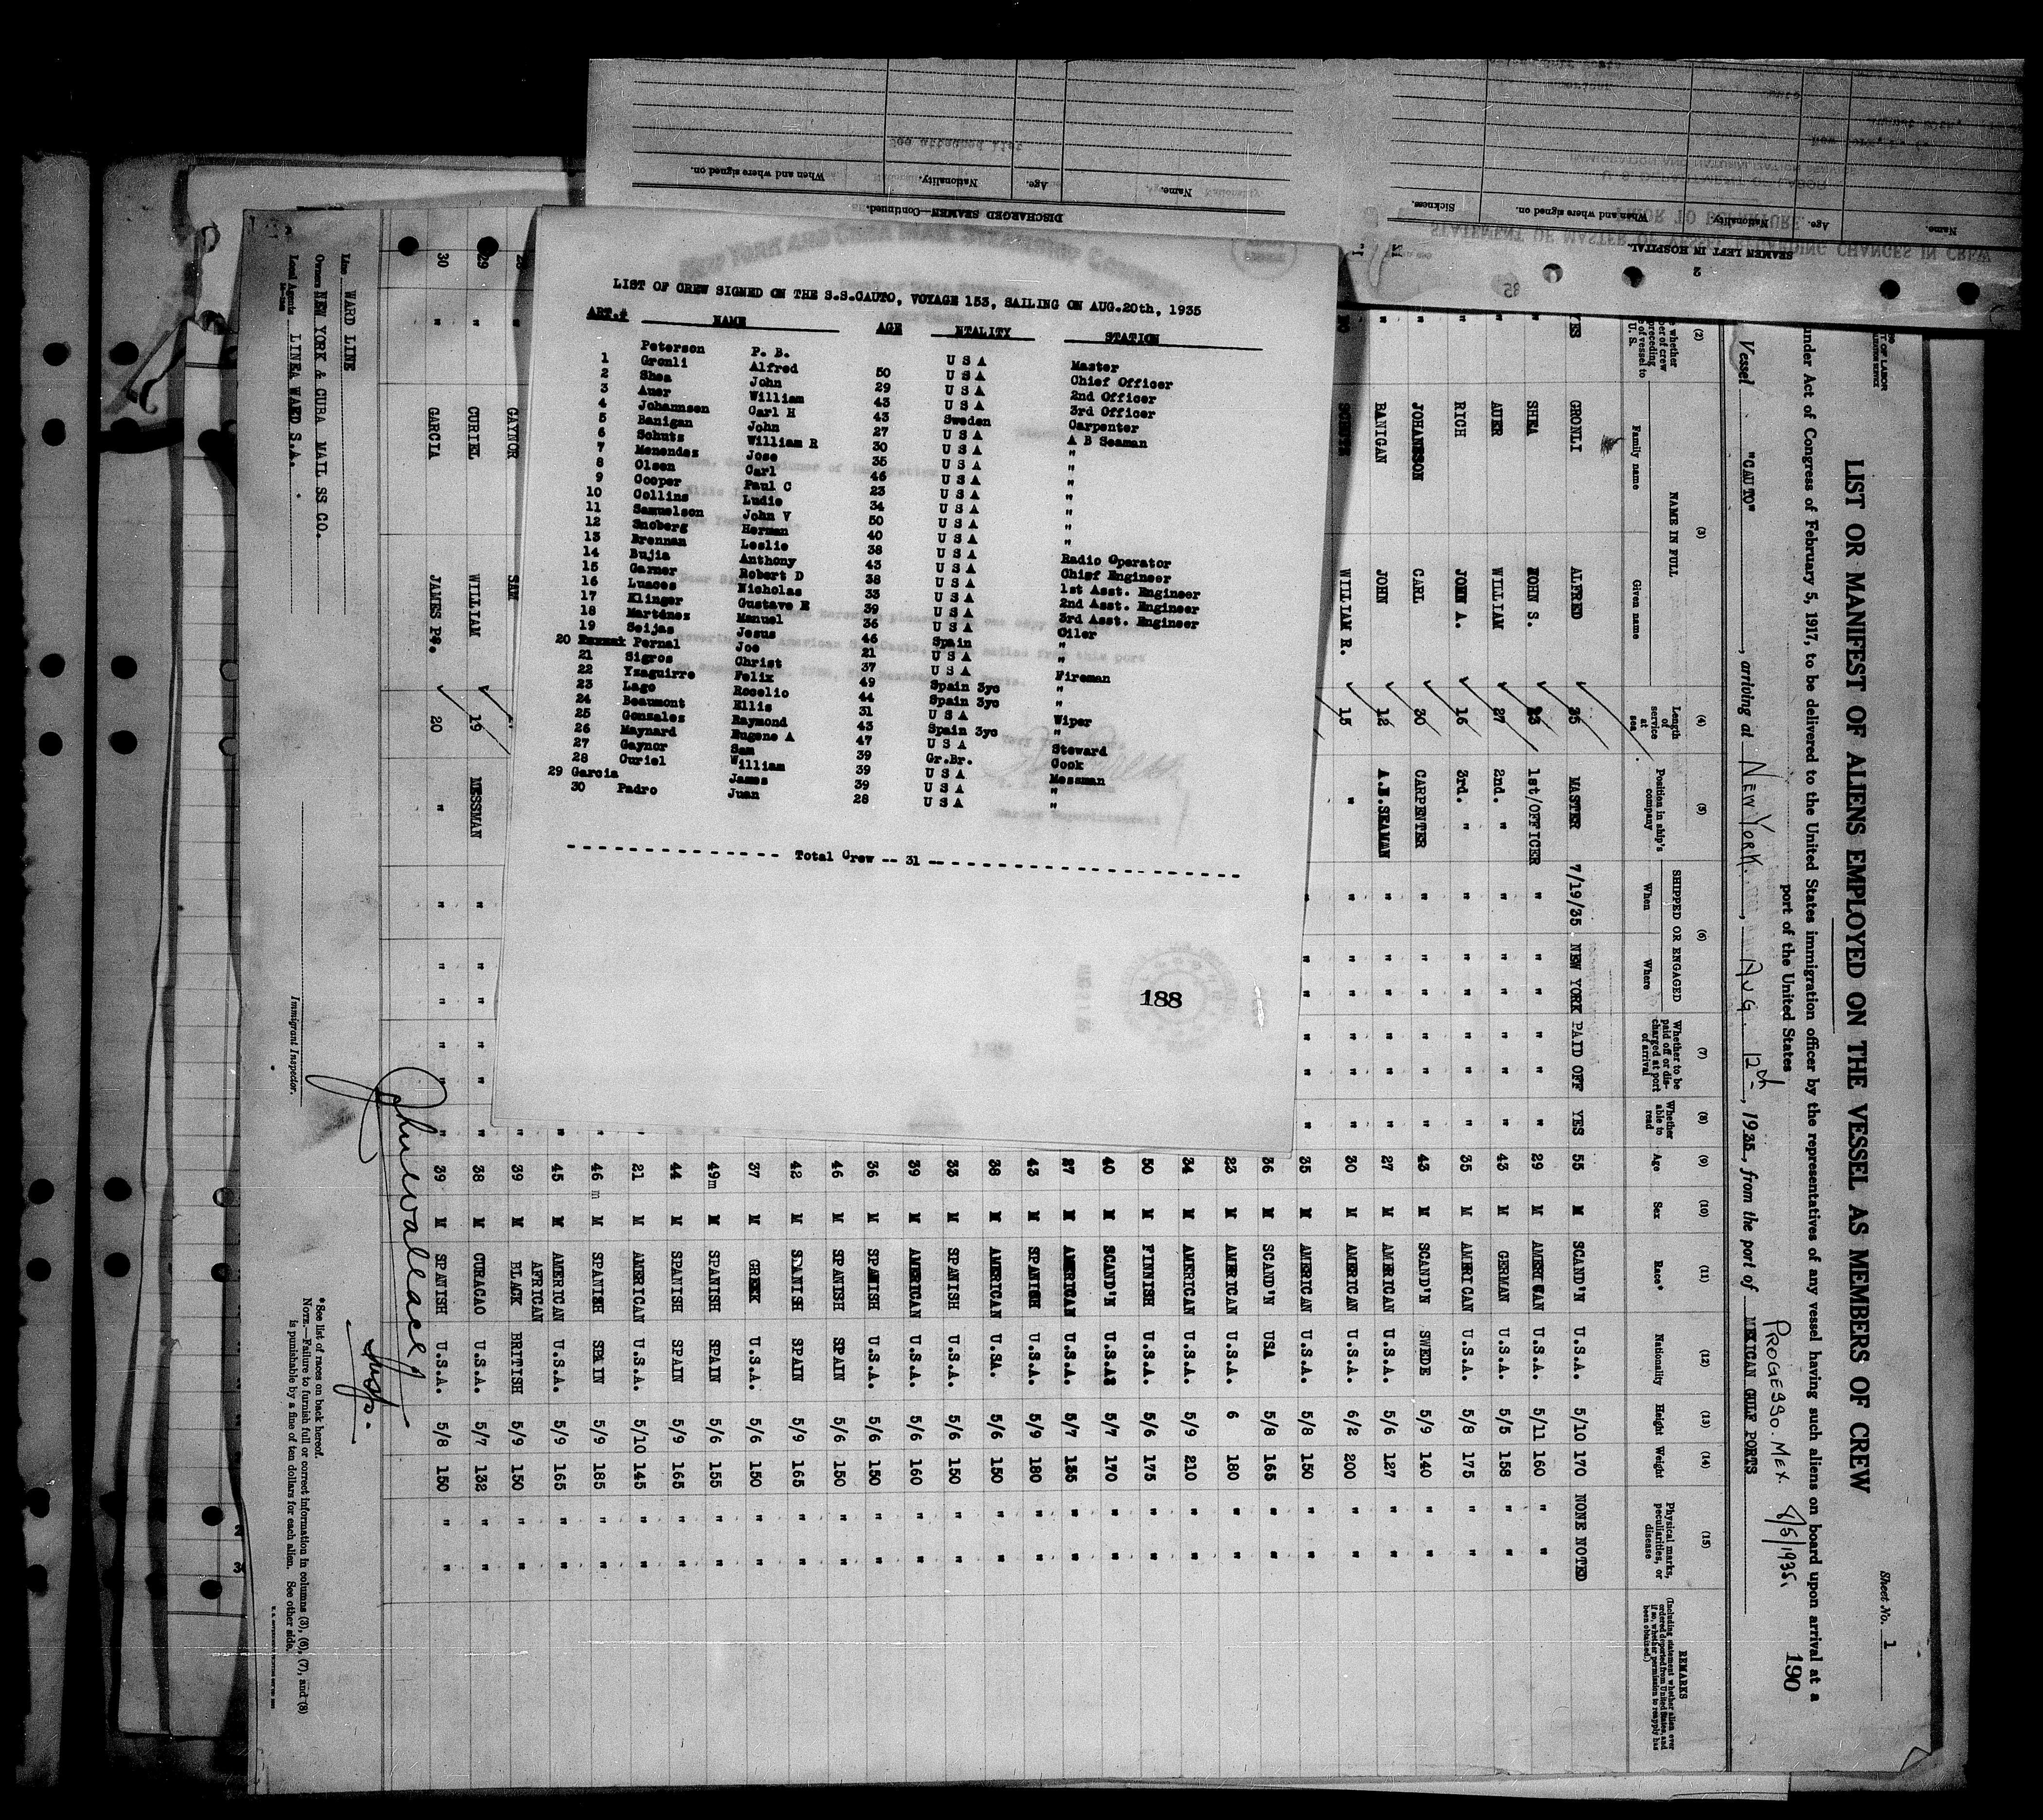 LIST OF CREW SIGNED ON THE S.S.CAUTO, VOYAGE 153, SAILING ON AUG.20th, 1935
ART.# NAME AGE NTALITY STATION
Peterson P. B. U S A Master
1 Gronli Alfred 50 U S A Chief Officer
2 Shea John 29 U S A 2nd Officer
3 Auer William 43 U S A 3rd Officer
4 Johannsen Carl H 43 Sweden Carpenter
5 Banigan John 27 U S A A B Seaman
6 Schutz William R 30 U S A "
7 Menendez Jose 35 U S A "
8 Olsen Carl 46 U S A "
9 Cooper Paul C 23 U S A "
10 Collins Ludie 34 U S A "
11 Samuelson John V 50 U S A "
12 Snoberg Herman 40 U S A "
13 Brennan Leslie 38 U S A Radio Operator
14 Bujia Anthony 43 U S A Chief Engineer
15 Garner Robert D 38 U S A 1st Asst. Engineer
16 Luaces Nicholas 33 U S A 2nd Asst. Engineer
17 Klinger Gustave E 39 U S A 3rd Asst. Engineer
18 Marténez Manuel 36 U S A Oiler
19 Seijas Jesus 46 Spain "
20 Pernal Joe 21 U S A "
21 Sigros Christ 37 U S A Fireman
22 Yzaguirre Felix 49 Spain 3yc "
23 Lago Rogelio 44 Spain 3yc "
24 Beaumont Ellis 31 U S A Wiper
25 Gonzales Raymond 43 Spain 3yc "
26 Maynard Eugene A 47 U S A Steward
27 Gaynor Sam 39 Gr.Br. Cook
28 Curiel William 39 U S A Messman
29 Garcia James 39 U S A "
30 Padro Juan 28 U S A "
Total Crew -- 31
188
Sheet No. 1
190
LIST OR MANIFEST OF ALIENS EMPLOYED ON THE VESSEL AS MEMBERS OF CREW
under Act of Congress of February 5, 1917, to be delivered to the United States immigration officer by the representatives of any vessel having such aliens on board upon arrival at a
port of the United States
PROGESSO. MEX. 8/5/1935.
Vessel "CAUTO", arriving at NEW YORK, AUG. 12th, 1935, from the port of MEXICAN GULF PORTS
(2) (3) (4) (5) (6) (7) (8) (9) (10) (11) (12) (13) (14) (15)
NAME IN FULL
Family name Given name
Length of service at sea
Position in ship's company
SHIPPED OR ENGAGED
When Where
Whether to be paid off or discharged at port of arrival
Whether able to read
Age Sex Race* Nationality Height Weight
Physical marks, peculiarities, or disease
REMARKS
(Including statement whether alien ever ordered deported from United States, and if so, whether permission to reapply has been obtained.)
YES GRONLI ALFRED 35 MASTER 7/19/35 NEW YORK PAID OFF YES 55 M SCAND'N U.S.A. 5/10 170 NONE NOTED
" SHEA JOHN S. 23 1st/OFFICER " " " " 29 M AMERICAN U.S.A. 5/11 160 " "
" AUER WILLIAM 27 2nd. " " " " " 43 M GERMAN U.S.A. 5/5 158 " "
" RICH JOHN A. 16 3rd. " " " " " 35 M AMERICAN U.S.A. 5/8 175 " "
" JOHANESON CARL 30 CARPENTER " " " " 43 M SCAND'N SWEDE 5/9 140 " "
" BANIGAN JOHN 12 A.B.SEAMAN " " " " 27 M AMERICAN U.S.A. 5/6 127 " "
SCHUTZ WILLIAM R. 15 " " " " " 30 M AMERICAN U.S.A. 6/2 200 " "
35 M AMERICAN U.S.A. 5/8 150 " "
36 M SCAND'N USA 5/8 165 " "
23 M AMERICAN U.S.A. 6 180 " "
34 M AMERICAN U.S.A. 5/9 210 " "
50 M FINNISH U.S.A. 5/6 175 " "
40 M SCAND'N U.S.A. 5/7 170 " "
27 M AMERICAN U.S.A. 5/7 135 " "
43 M SPANISH U.S.A. 5/9 180 " "
38 M AMERICAN U.SA. 5/6 150 " "
33 M SPANISH U.S.A. 5/6 150 " "
39 M AMERICAN U.S.A. 5/6 160 " "
36 M SPANISH U.S.A. 5/6 150 " "
46 M SPANISH SPAIN 5/6 150 " "
42 M SPANISH SPAIN 5/9 165 " "
37 M GREEK U.S.A. 5/6 150 " "
49m M SPANISH SPAIN 5/6 155 " "
44 M SPANISH SPAIN 5/9 165 " "
21 M AMERICAN U.S.A. 5/10 145 " "
46 m M SPANISH SPAIN 5/9 185 " "
45 M AMERICAN U.S.A. 5/9 165 " "
GAYNOR SAM 39 M AFRICAN BLACK BRITISH 5/9 150 " "
29 " CURIEL WILLIAM 19 MESSMAN " " " " " 38 M CURACAO U.S.A. 5/7 132 " "
30 " GARCIA JAMES Ps. 20 " " " " " " 39 M SPANISH U.S.A. 5/8 150 " "
John Wallace
Insp.
Immigrant Inspector.
Line WARD LINE
Owners NEW YORK & CUBA MAIL SS CO.
Local Agents LINEA WARD S.A.
*See list of races on back hereof.
NOTE.—Failure to furnish full or correct information in columns (3), (6), (7), and (8)
is punishable by a fine of ten dollars for each alien. See other side.
DISCHARGED SEAMEN—Continued.
Name. Age. Nationality. When and where signed on.
See attached list
SEAMEN LEFT IN HOSPITAL
Name. Age. Nationality. When and where signed on. Sickness.
STATEMENT OF MASTER OF VESSEL REGARDING CHANGES IN CREW
PRIOR TO DEPARTURE